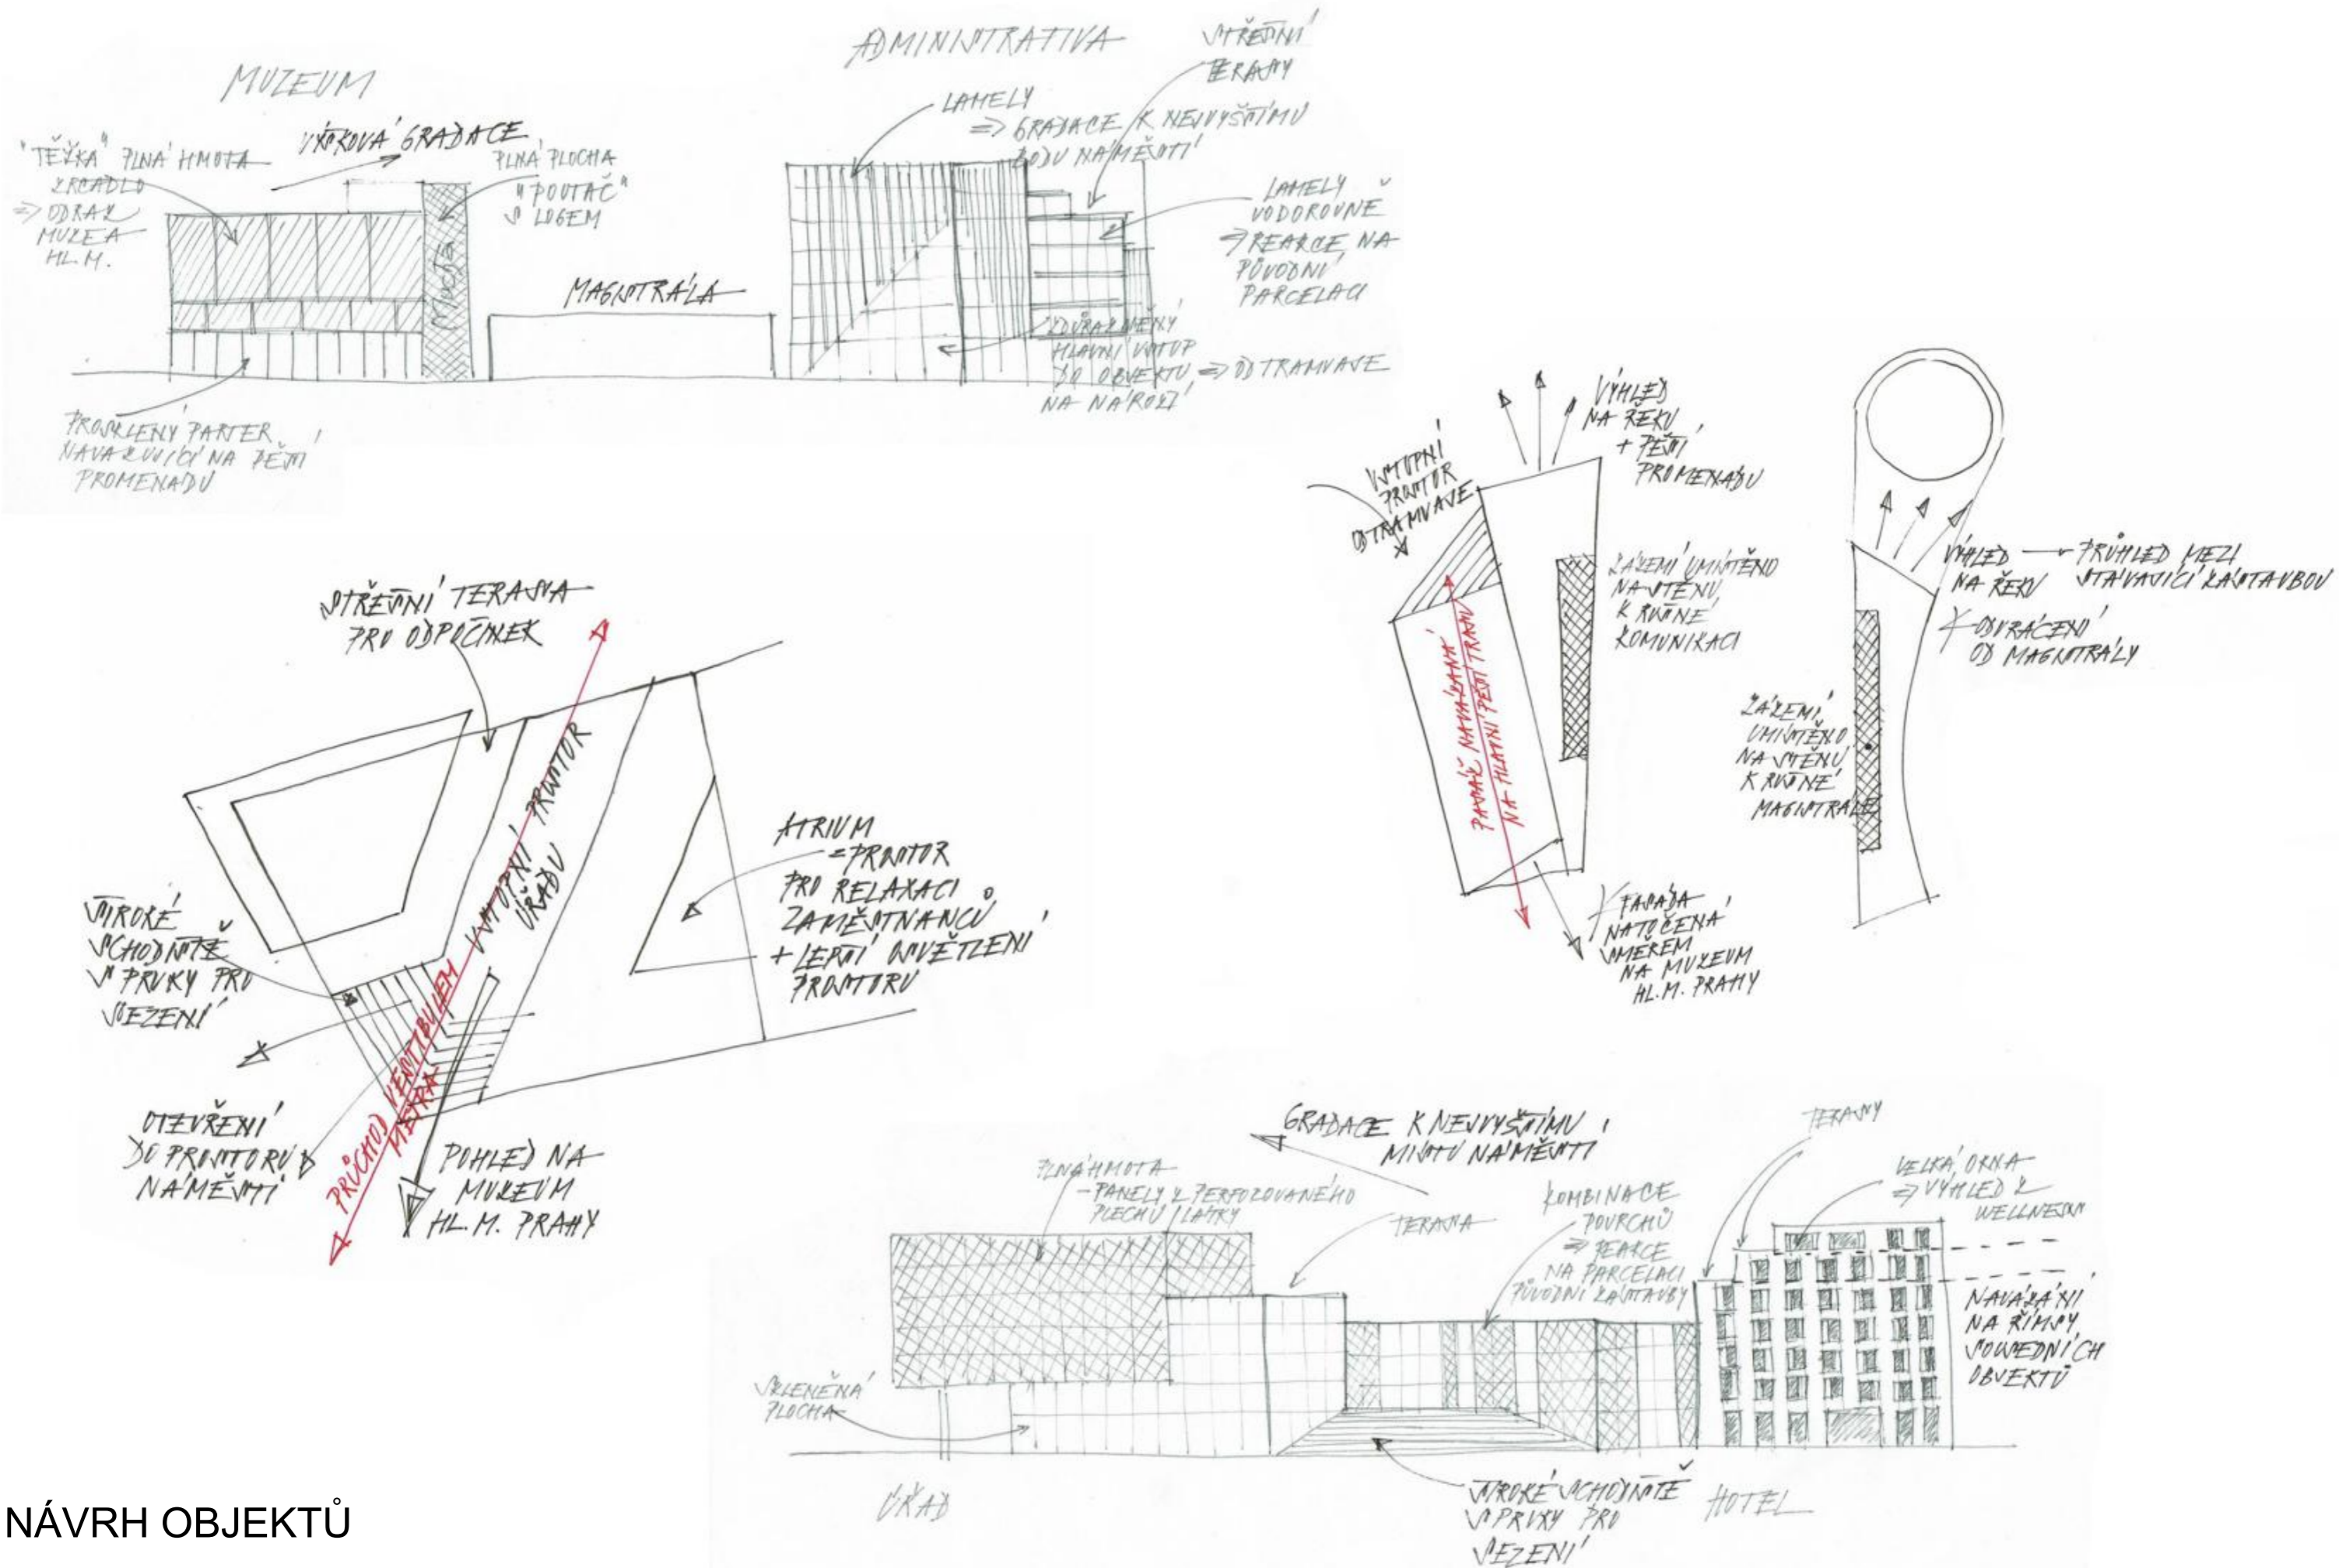 MUZEUM
VÝŠKOVÁ GRADACE
"TĚŽKÁ" PLNÁ HMOTA
ZRCADLO
=> ODRAZ
MUZEA
HL. M.
PLNÁ PLOCHA
"POUTAČ"
S LOGEM
Mucha
PROSKLENÝ PARTER
NAVAZUJÍCÍ NA PĚŠÍ
PROMENÁDU
MAGISTRÁLA
ADMINISTRATIVA
STŘEŠNÍ
TERASY
LAMELY
=> GRADACE K NEJVYŠŠÍMU
BODU NÁMĚSTÍ
LAMELY
VODOROVNĚ
=> REAKCE NA
PŮVODNÍ
PARCELACI
ZDŮRAZNĚNÝ
HLAVNÍ VSTUP
DO OBJEKTU => OD TRAMVAJE
NA NÁROŽÍ
VSTUPNÍ
PROSTOR
OD TRAMVAJE
VÝHLED
NA ŘEKU
+ PĚŠÍ
PROMENÁDU
ZÁZEMÍ UMÍSTĚNO
NA STĚNU
K RUŠNÉ
KOMUNIKACI
PASÁŽ NAVÁZANÁ
NA HLAVNÍ PĚŠÍ TRASU
FASÁDA
NATOČENÁ
SMĚREM
NA MUZEUM
HL. M. PRAHY
VÝHLED
NA ŘEKU
PRŮHLED MEZI
STÁVAJÍCÍ ZÁSTAVBOU
ODVRÁCENÍ
OD MAGISTRÁLY
ZÁZEMÍ
UMÍSTĚNO
NA STĚNU
K RUŠNÉ
MAGISTRÁLE
STŘEŠNÍ TERASA
PRO ODPOČINEK
VSTUPNÍ PROSTOR
ÚŘADU
ATRIUM
= PROSTOR
PRO RELAXACI
ZAMĚSTNANCŮ
+ LEPŠÍ OSVĚTLENÍ
PROSTORU
ŠIROKÉ
SCHODIŠTĚ
S PRVKY PRO
SEZENÍ
PRŮCHOD VESTIBULEM
METRA
OTEVŘENÍ
DO PROSTORU
NÁMĚSTÍ
POHLED NA
MUZEUM
HL. M. PRAHY
GRADACE K NEJVYŠŠÍMU
MÍSTU NÁMĚSTÍ
PLNÁ HMOTA
- PANELY Z PERFOROVANÉHO
PLECHU / LÁTKY
TERASA
KOMBINACE
POVRCHŮ
=> REAKCE
NA PARCELACI
PŮVODNÍ ZÁSTAVBY
TERASY
VELKÁ OKNA
=> VÝHLED Z
WELLNESSU
NAVÁZÁNÍ
NA ŘÍMSY
SOUSEDNÍCH
OBJEKTŮ
SKLENĚNÁ
PLOCHA
ÚŘAD
ŠIROKÉ SCHODIŠTĚ
S PRVKY PRO
SEZENÍ
HOTEL
NÁVRH OBJEKTŮ